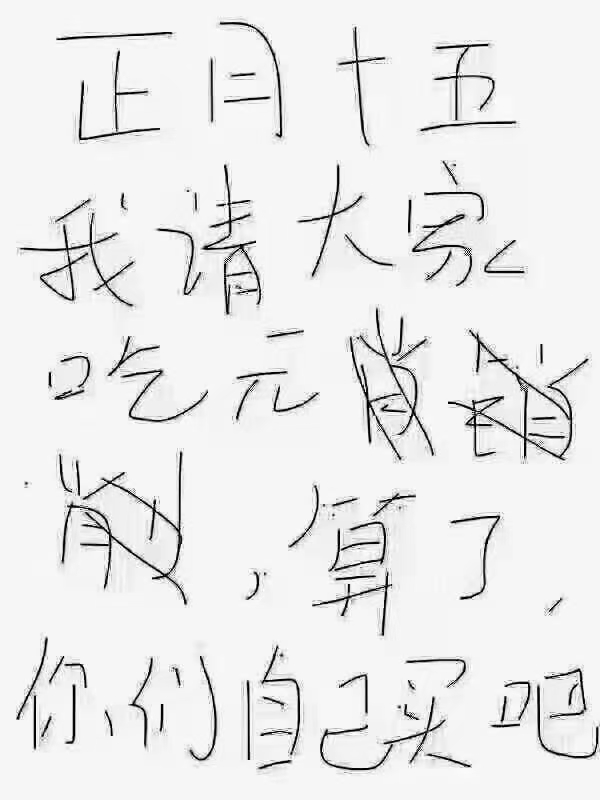 正月十五
我请大家
吃元肖销
削,算了,
你们自己买吧